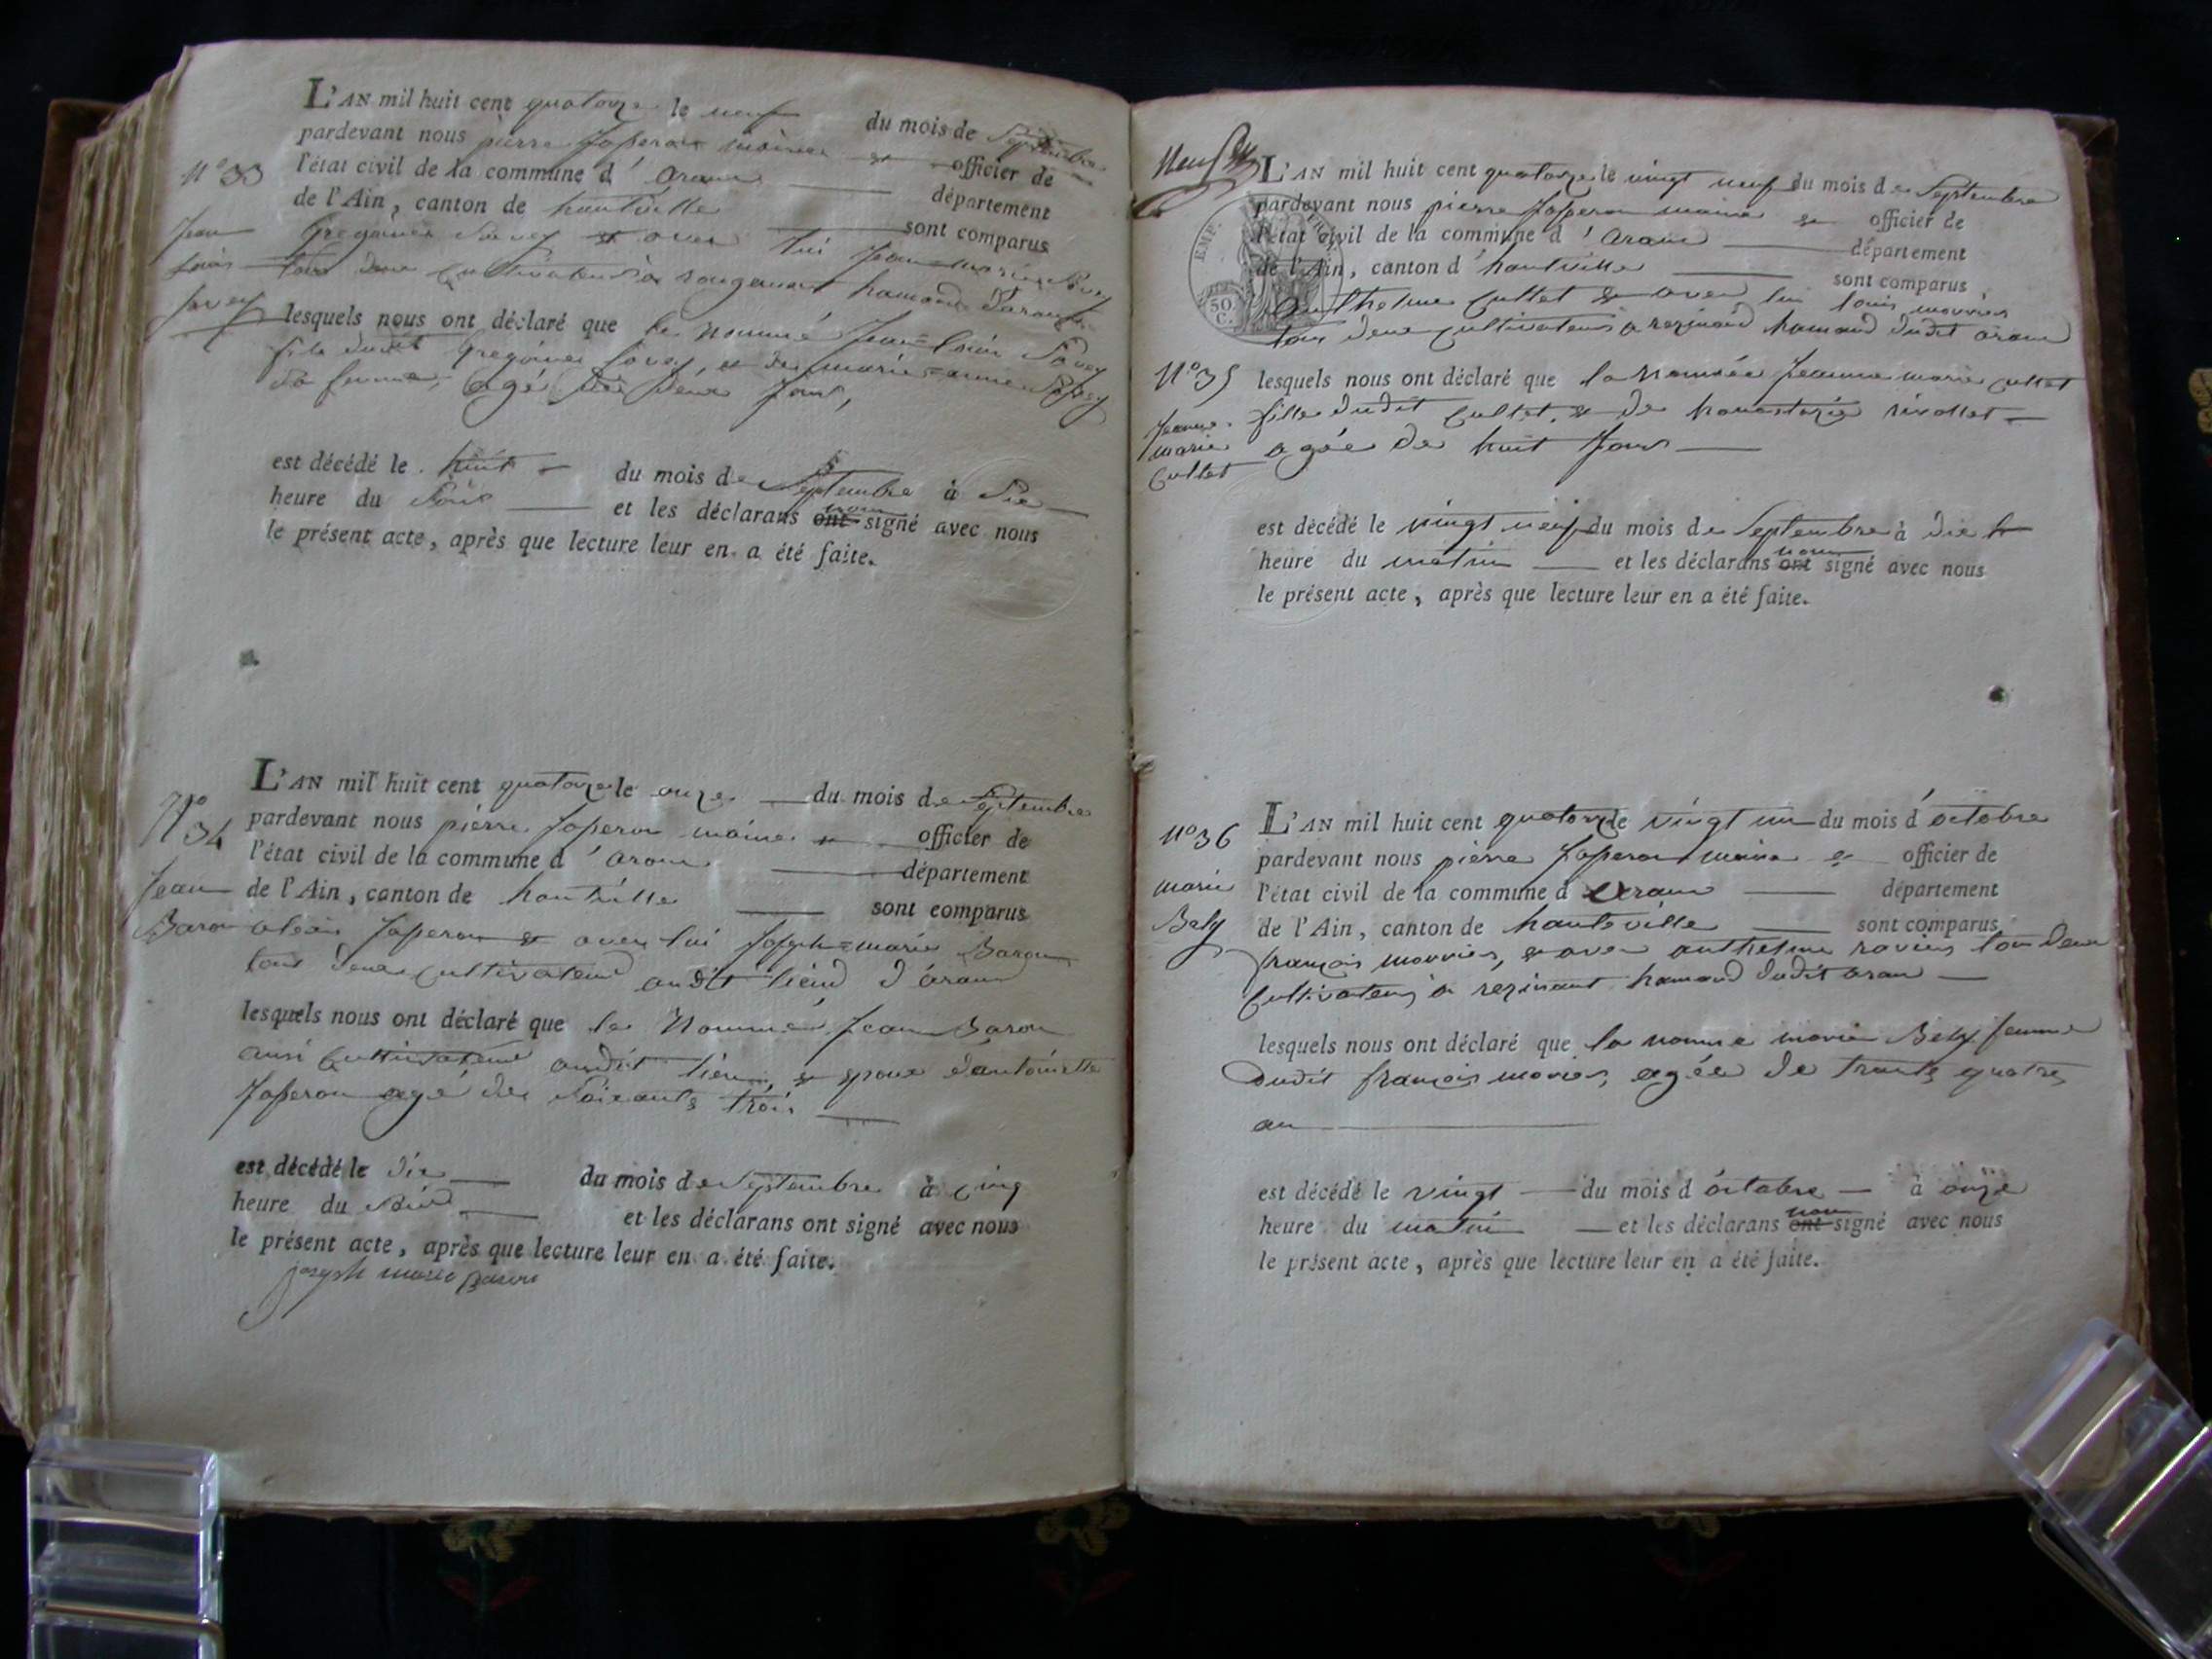 L'AN mil huit cent quatorze le neuf du mois de Septembre
pardevant nous pierre Josperon maire et officier de
N°33 l'état civil de la commune d'aranc département
de l'Ain, canton de hauteville sont comparus
Jean Gregoire Savey et avec lui Jean=marie Savey
louis tous deux cultivateurs à rougemont hamaud d'aranc
Savey lesquels nous ont déclaré que le nommé Jean=louis Savey
fils dudit Gregoire Savey, et de marie=anne
sa femme, agé de deux jour,
est décédé le huit du mois de Septembre à Six
heure du Soir et les déclarans ont non signé avec nous
le présent acte, après que lecture leur en a été faite.
L'AN mil huit cent quatorze le onze du mois de Septembre
N° 34 pardevant nous pierre Josperon maire et officier de
l'état civil de la commune d'aranc département
Jean de l'Ain, canton de hauteville sont comparus
Baron Josperon et avec lui Joseph=marie Baron
tous deux cultivateurs audit lieu d'aranc
lesquels nous ont déclaré que le Nommé Jean Baron
aussi cultivateur audit lieu, et epoux d'antoinette
Josperon agé de Soixante trois
est décédé le dix du mois de Septembre à cinq
heure du Soir et les déclarans ont signé avec nous
le présent acte, après que lecture leur en a été faite.
joseph marie baron
Neuf
L'AN mil huit cent quatorze le vingt neuf du mois de Septembre
pardevant nous pierre Josperon maire et officier de
l'état civil de la commune d'aranc département
de l'Ain, canton d'hauteville sont comparus
EMP.
50 C.
Anthelme Cultet et avec lui louis mouvier
tous deux cultivateurs a rezinand hamaud dudit aranc
N°35 lesquels nous ont déclaré que la Nommée Jeanne marie Cultet
Jeanne fille dudit Cultet, et de rivollet
marie agée de huit Jour
Cultet
est décédé le vingt neuf du mois de Septembre à dix h
heure du matin et les déclarans ont non signé avec nous
le présent acte, après que lecture leur en a été faite.
L'AN mil huit cent quatorze le vingt un du mois d'octobre
N°36 pardevant nous pierre Josperon maire et officier de
marie l'état civil de la commune d'aranc département
Bely de l'Ain, canton de hauteville sont comparus
françois mouvier, et avec anthelme ravier tous deux
Cultivateurs a rezinant hamaud dudit aranc
lesquels nous ont déclaré que la nommé marie Bely femme
dudit françois movier, agée de trante quatre
an
est décédé le vingt du mois d'octobre à onze
heure du matin et les déclarans ont non signé avec nous
le présent acte, après que lecture leur en a été faite.